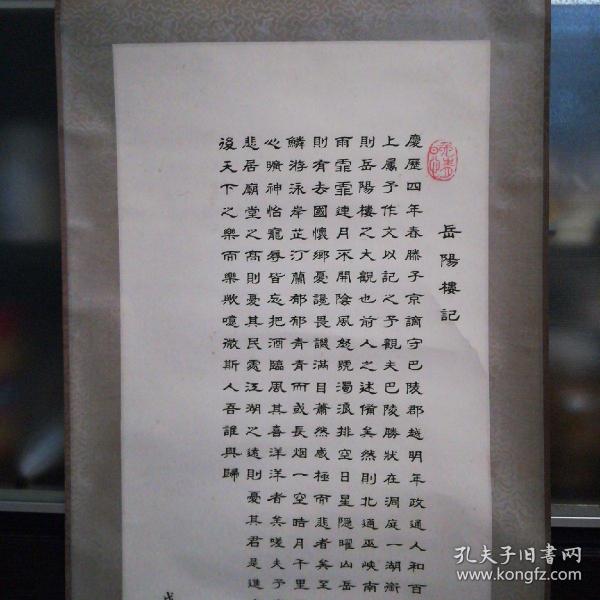 岳陽樓記
慶歷四年春滕子京謫守巴陵郡越明年政通人和百
上屬予作文以記之予觀夫巴陵勝狀在洞庭一湖銜
則岳陽樓之大觀也前人之述備矣然則北通巫峽南
雨霏霏連月不開陰風怒號濁浪排空日星隱曜山岳
則有去國懷鄉憂讒畏譏滿目蕭然感極而悲者矣至
鱗游泳岸芷汀蘭郁郁青青而或長烟一空皓月千里
心曠神怡寵辱皆忘把酒臨風其喜洋洋者矣嗟夫予
悲居廟堂之高則憂其民處江湖之遠則憂其君是進
後天下之樂而樂歟噫微斯人吾誰與歸
孔夫子旧书网
www.kongfz.com